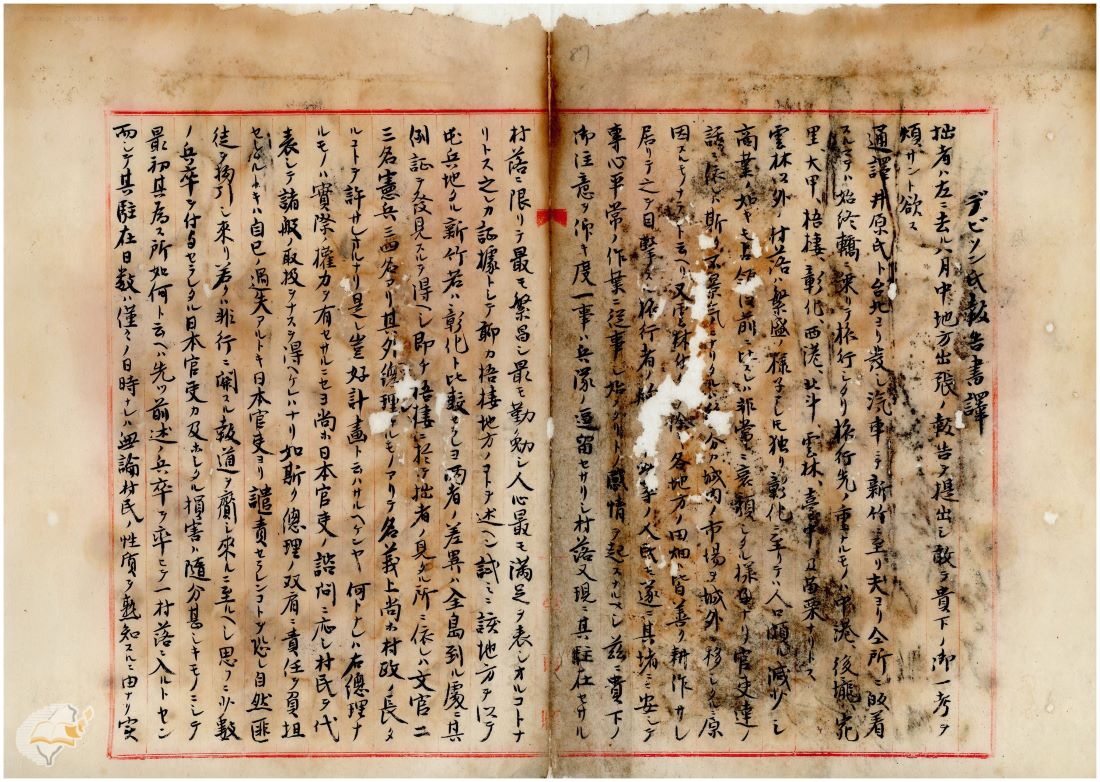 デビソン氏報告書譯
拙者ハ左ニ去ル八月中地方出張ノ報告ヲ提出シ敢テ貴下ノ御一考ヲ
煩サント欲ス
通譯井原氏ト台北ヨリ發シ汽車ニテ新竹ニ至リ夫ヨリ会所ニ皈着
スルマテハ始終轎ニ乗リテ旅行シタリ旅行先ノ重ナルモノハ中港、後壠、宛
里大甲、梧棲、彰化西港、北斗、雲林、嘉中
雲林以外ノ村落ハ繁盛ノ様子ナレ共独リ彰化ニ至リテハ人口頗ル減少シ
商業ノ如キモ占領以前ニ比スレハ非常ニ衰頽シタル様子ナリ官吏達ノ
話ニ依レハ斯ク不景氣ナリ ハ 分ハ城内ノ市場ヲ城外ニ移シタル原
因スルモノナラスト云ヘリ又雲林 各地方ノ田畑ハ皆善ク耕作サレ
居リテ之ヲ目撃スル旅行者ハ 人民モ遂ニ其堵ニ安シテ
事心平常ノ作業ニ從事シ タリトノ感情ヲ起スナルヘシ茲ニ貴下ノ
御注意ヲ仰キ度一事ハ兵隊ノ逗留セサリシ村落又現ニ其駐在セサル
村落ニ限リテ最モ繁昌シ最モ勤勉シ人心最モ満足ヲ表シオルコトナ
リトス之レカ証據トシテ聊カ梧棲地方ノコトヲ述ヘン試ミニ該地方ヲ以テ
屯兵地タル新竹若ハ彰化ト比較セラレヨ両者ノ差異ハ全島到ル處ニ其
例証ヲ發見スルヲ得ヘシ即チ梧棲ニ於テ拙者ノ見タル所ニ依レハ文官二
三名憲兵三四名アリ其外總理ナルモノアリテ名義上尚ホ村政ノ長タ
ルコトヲ許サレオルナリ是レ豈好計画ト云ハサルヘケンヤ何トナレハ右總理ナ
ルモノハ實際ノ權力ヲ有セサルニセヨ尚ホ日本官吏ノ諮問ニ応シ村民ヲ代
表シテ諸般ノ取扱ヲナスヲ得ヘケレハナリ如斯ク總理ノ双肩ニ責任ヲ負担
セシムルトキハ自己ノ過失アルトキ日本官吏ヨリ譴責セラレンコトヲ恐レ自然匪
徒ヲ拘引シ来リ若クハ非行ニ関スル報道ヲ齎シ来ルニ至ルヘシ思フニ少数
ノ兵卒ヲ付与セラレタル日本官吏カ及ホシタル損害ハ随分甚シキモノニシテ
最初其為ス所如何ト云ヘハ先ツ前述ノ兵卒ヲ率ヒテ一村落ニ入ルトセン
而シテ其駐在日数ハ僅々ノ日時シハ無論村民ノ性質ヲ熟知スルニ由ナク実